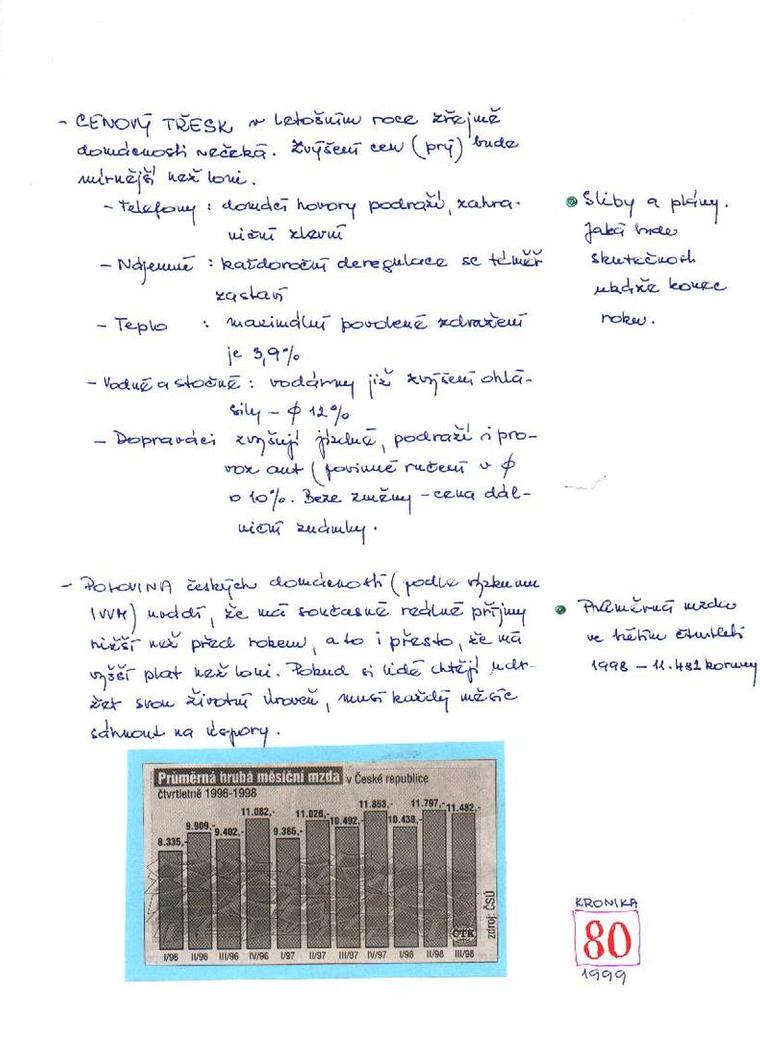 - CENOVÝ TŘESK v letošním roce zřejmě
domácnosti nečeká. Zvýšení cen (prý) bude
mírnější než loni.
- Telefony : domácí hovory podraží, zahra-
niční zlevní
- Nájemné : každoroční deregulace se téměř
zastaví
- Teplo : maximální povolené zdražení
je 3,9%
- Vodné a stočné : vodárny již zvýšení ohlá-
sily - ϕ 12%
- Dopraváci zvyšují jízdné, podraží i pro-
voz aut (povinné ručení v ϕ
o 10%. Beze změny - cena dál-
niční známky.
Sliby a plány.
Jaká bude
skutečnost
ukáže konec
roku.
- POLOVINA českých domácností (podle výzkumu
IVVM) uvádí, že má současné reálné příjmy
nižší než před rokem, a to i přesto, že má
vyšší plat než loni. Pokud si lidé chtějí udr-
žet svou životní úroveň, musí každý měsíc
sáhnout na úspory.
Průměrná mzda
ve třetím čtvrtletí
1998 - 11.482 koruny
Průměrná hrubá měsíční mzda v České republice
čtvrtletně 1996-1998
8.335,- 9.909,- 9.402,- 11.082,- 9.385,- 11.026,- 10.492,- 11.853,- 10.438,- 11.797,- 11.482,-
I/96 II/96 III/96 IV/96 I/97 II/97 III/97 IV/97 I/98 II/98 III/98
ČTK
zdroj: ČSÚ
KRONIKA
80
1999